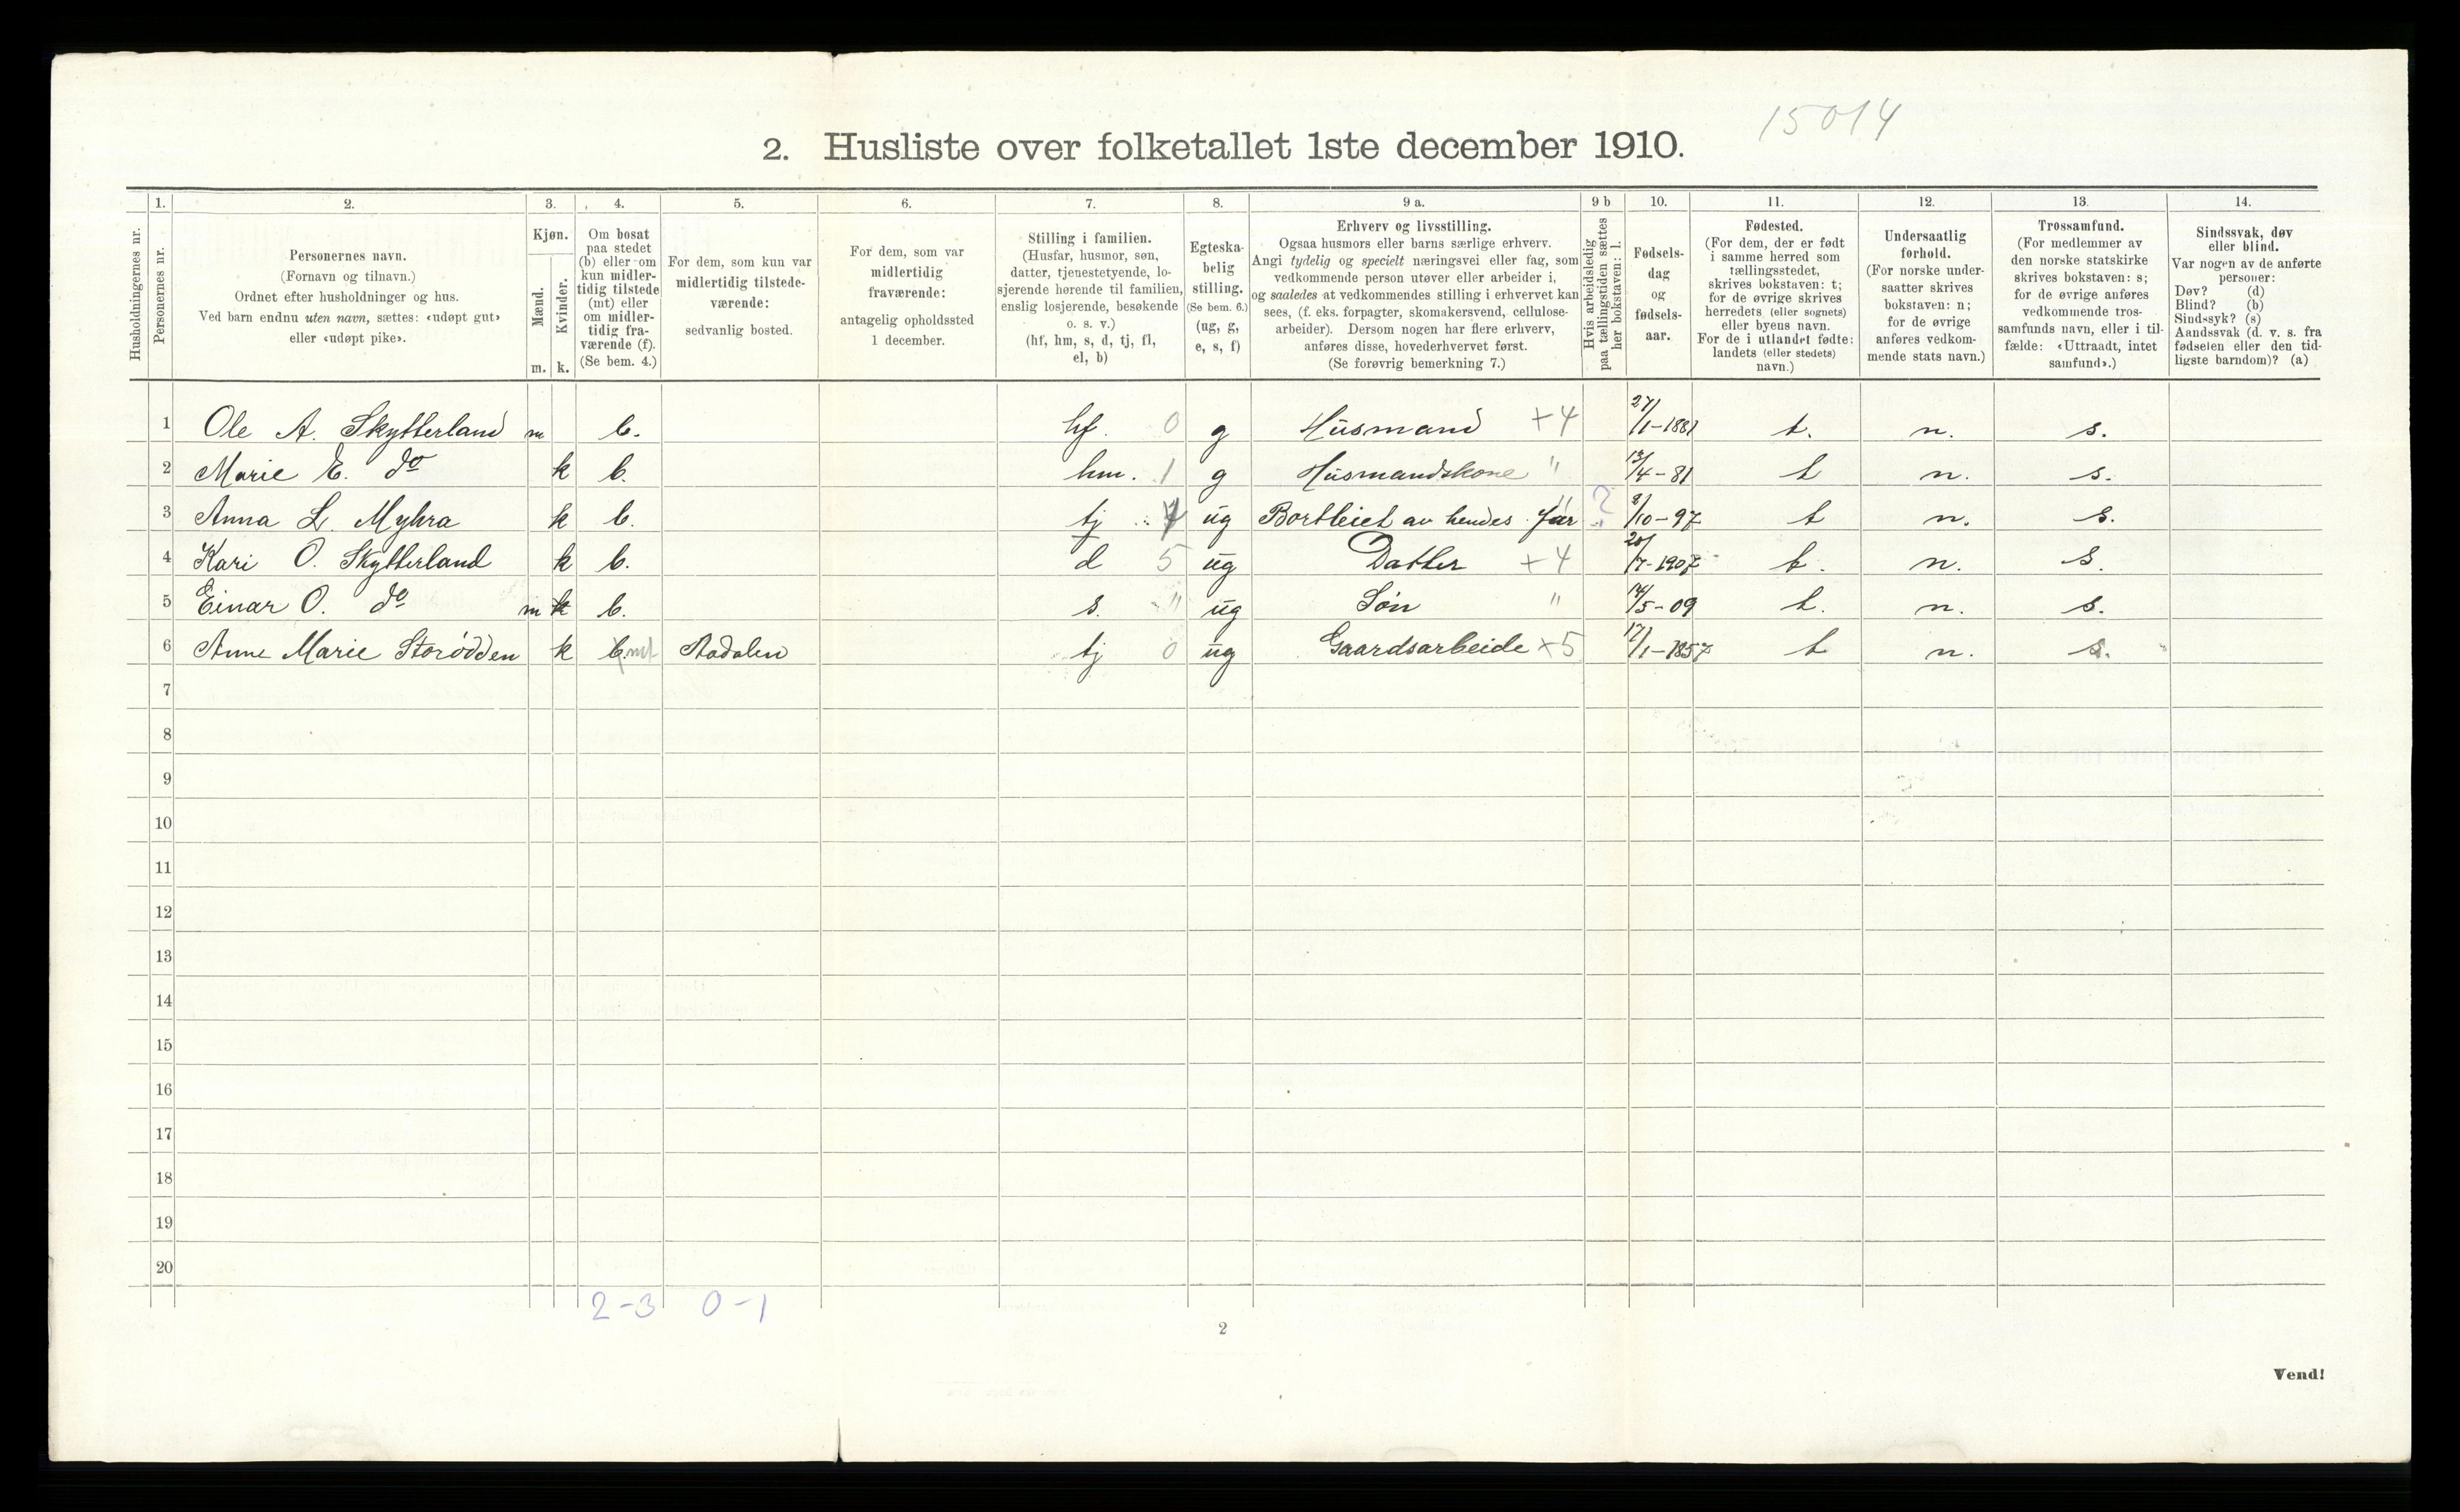 15014
2. Husliste over folketallet 1ste december 1910.
Husholdningernes nr.
1.
Personernes nr.
2.
Personernes navn.
(Fornavn og tilnavn.)
Ordnet efter husholdninger og hus.
Ved barn endnu uten navn, sættes: «udøpt gut»
eller «udøpt pike».
3.
Kjøn.
Mænd.
m.
Kvinder.
k.
4.
Om bosat
paa stedet
(b) eller om
kun midler-
tidig tilstede
(mt) eller
om midler-
tidig fra-
værende (f).
(Se bem. 4.)
5.
For dem, som kun var
midlertidig tilstede-
værende:
sedvanlig bosted.
6.
For dem, som var
midlertidig
fraværende:
antagelig opholdssted
1 december.
7.
Stilling i familien.
(Husfar, husmor, søn,
datter, tjenestetyende, lo-
sjerende hørende til familien,
enslig losjerende, besøkende
o. s. v.)
(hf, hm, s, d, tj, fl,
el, b)
8.
Egteska-
belig
stilling.
(Se bem. 6.)
(ug, g,
e, s, f)
9 a.
Erhverv og livsstilling.
Ogsaa husmors eller barns særlige erhverv.
Angi tydelig og specielt næringsvei eller fag, som
vedkommende person utøver eller arbeider i,
og saaledes at vedkommendes stilling i erhvervet kan
sees, (f. eks. forpagter, skomakersvend, cellulose-
arbeider). Dersom nogen har flere erhverv,
anføres disse, hovederhvervet først.
(Se forøvrig bemerkning 7.)
9 b
Hvis arbeidsledig
paa tællingstiden sættes
her bokstaven: l.
10.
Fødsels-
dag
og
fødsels-
aar.
11.
Fødested.
(For dem, der er født
i samme herred som
tællingsstedet,
skrives bokstaven: t;
for de øvrige skrives
herredets (eller sognets)
eller byens navn.
For de i utlandet fødte:
landets (eller stedets)
navn.)
12.
Undersaatlig
forhold.
(For norske under-
saatter skrives
bokstaven: n;
for de øvrige
anføres vedkom-
mende stats navn.)
13.
Trossamfund.
(For medlemmer av
den norske statskirke
skrives bokstaven: s;
for de øvrige anføres
vedkommende tros-
samfunds navn, eller i til-
fælde: «Uttraadt, intet
samfund».)
14.
Sindssvak, døv
eller blind.
Var nogen av de anførte
personer:
Døv? (d)
Blind? (b)
Sindssyk? (s)
Aandssvak (d. v. s. fra
fødselen eller den tid-
ligste barndom)? (a)
1 Ole A. Skytterland m b. hf. 0 g Husmand +4 27/1-1881 t. n. s.
2 Marie E. do k b. hm. 1 g Husmandskone " 13/4-81 t n. s.
3 Anna L. Myhra k b. tj ug Bortleiet av hendes far ? 2/10-97 t n. s.
4 Kari O. Skytterland k b. d 5 ug Datter +4 20/7-1907 t. n. s.
5 Einar O. do m k b. s. " ug Søn " 14/5-09 t. n. s.
6 Anne Marie Storødden k b. mt Aadalen tj 0 ug Gaardsarbeide +5 17/1-1857 t n. s.
7
8
9
10
11
12
13
14
15
16
17
18
19
20
2-3 0-1
2
Vend!